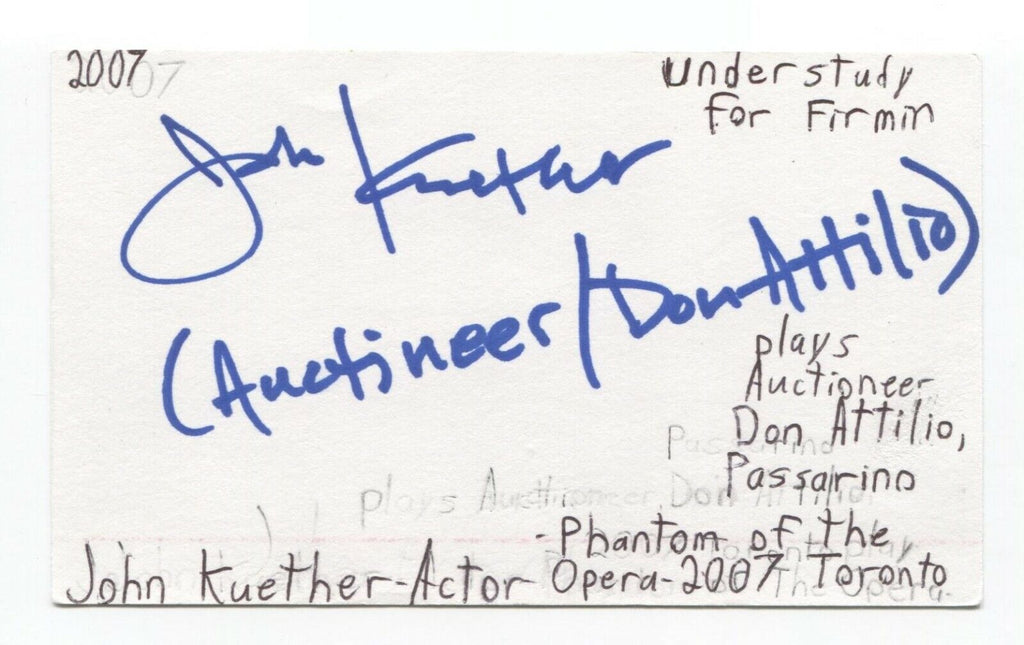 2007
Understudy
for Firmin
John Kuether
(Auctineer/Don Attilio)
plays
Auctioneer
Don Attilio,
Passarino
Passarino
plays Aucthioneer, Don Attilio,
-Phantom of the
John Kuether-Actor-Opera-2007 Toronto
The Opera-